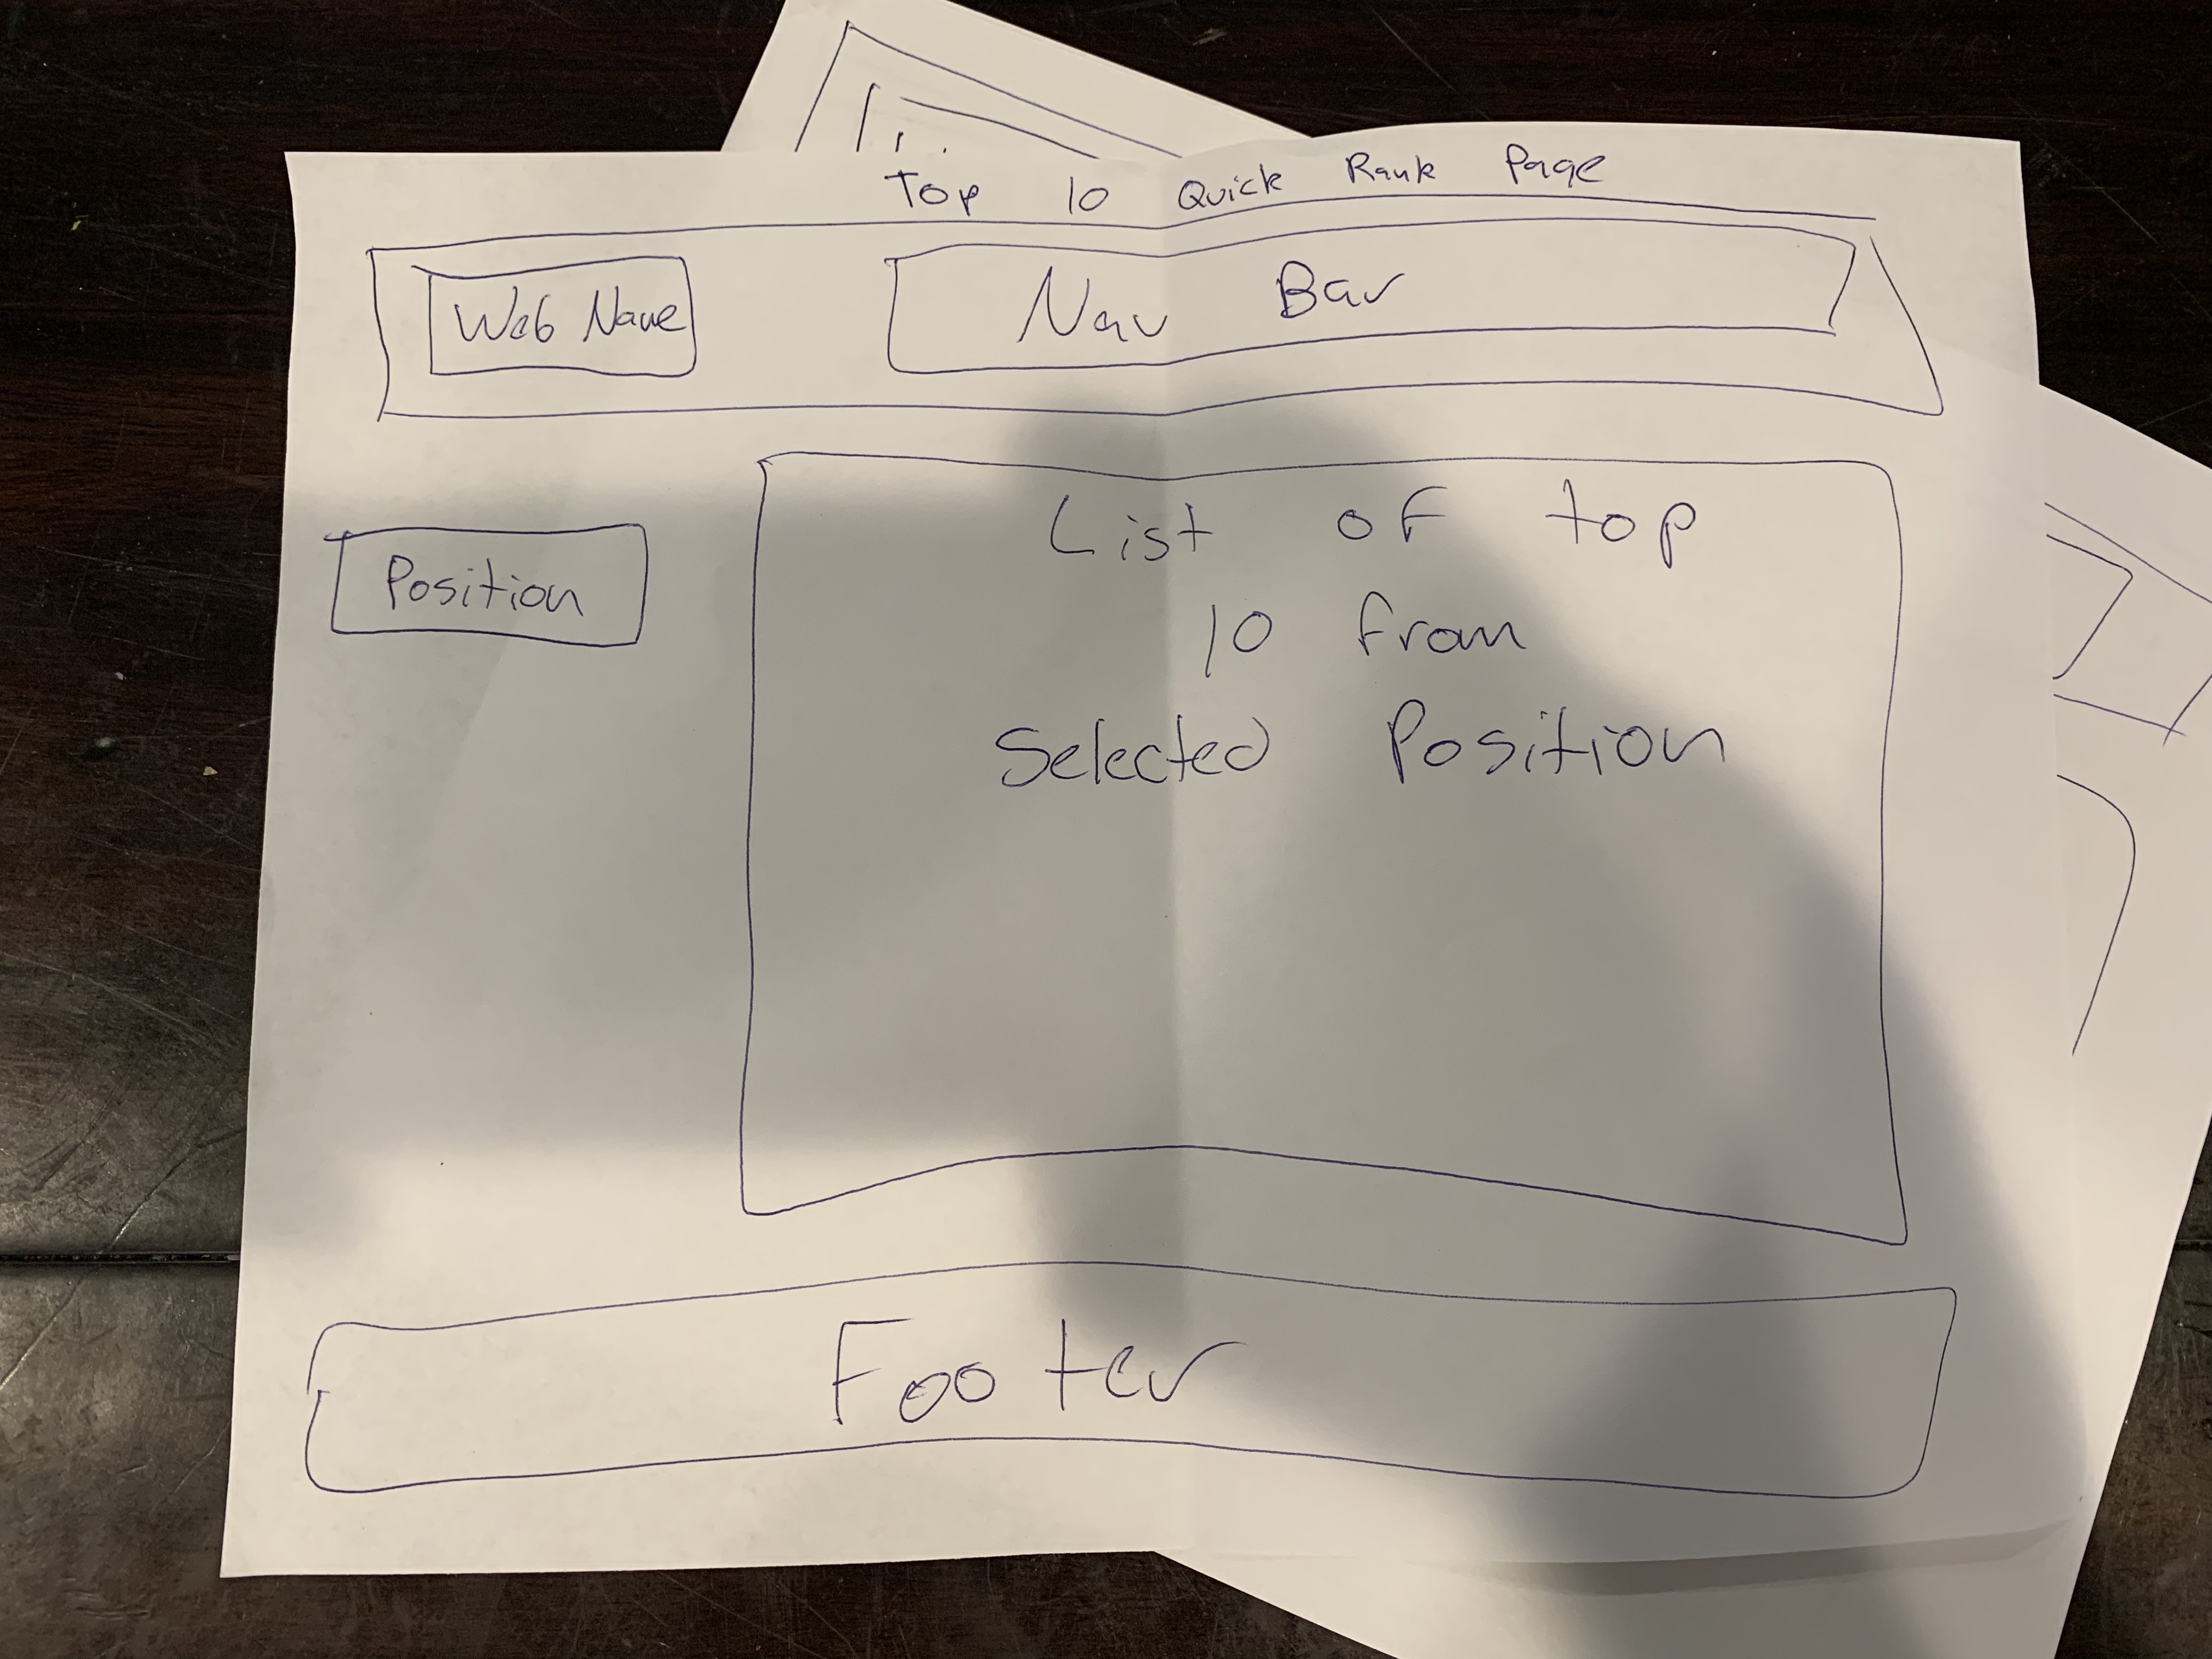 Top 10 Quick Rank Page
Web Name
Nav Bar
Position
List of top
10 from
Selected Position
Footer